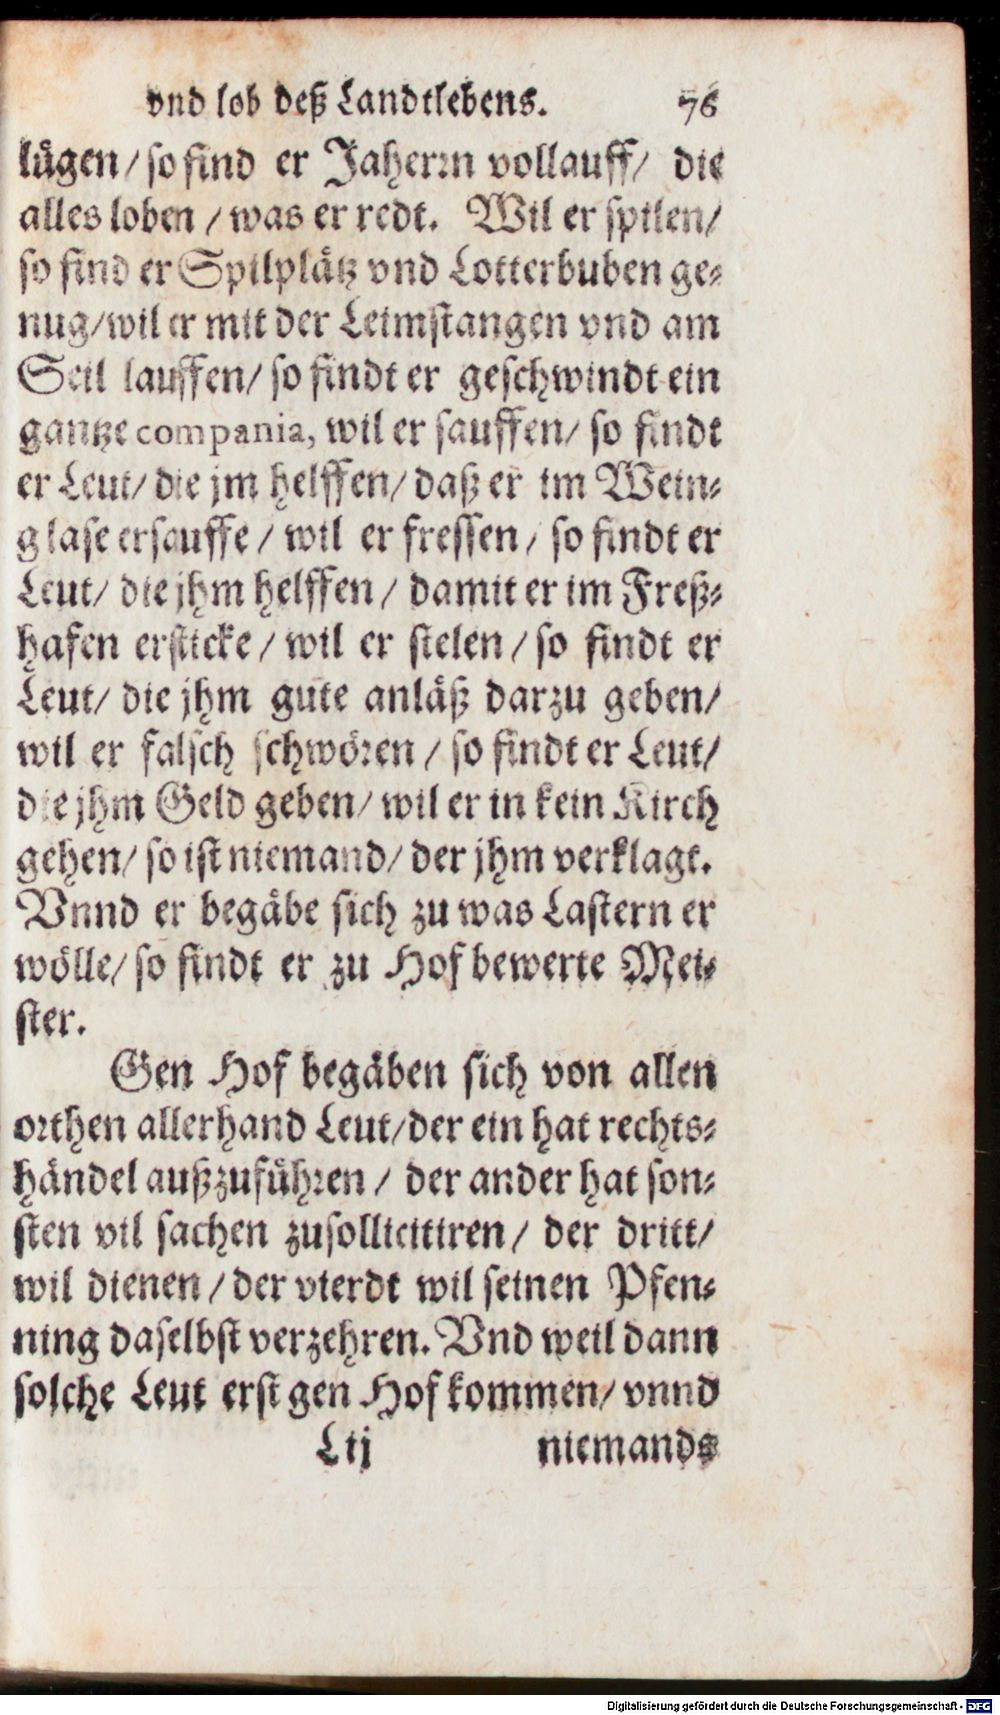 vnd lob deß Landtlebens. 76
lügen/ so find er Jaherrn vollauff/ die
alles loben / was er redt. Wil er spilen/
so find er Spilplätz vnd Lotterbuben ge-
nug/wil er mit der Leimstangen vnd am
Seil lauffen/ so findt er geschwindt ein
gantze compania, wil er sauffen/ so findt
er Leut/ die jm helffen/ daß er im Wein-
glase ersauffe / wil er fressen / so findt er
Leut/ die jhm helffen / damit er im Freß-
hafen ersticke / wil er stelen / so findt er
Leut/ die jhm gute anläß darzu geben/
wil er falsch schwören / so findt er Leut/
die jhm Geld geben/ wil er in kein Kirch
gehen/ so ist niemand/ der jhm verklagt.
Vnnd er begäbe sich zu was Lastern er
wölle/ so findt er zu Hof bewerte Mei-
ster.
Gen Hof begäben sich von allen
orthen allerhand Leut/der ein hat rechts-
händel außzuführen / der ander hat son-
sten vil sachen zusollicitiren / der dritt/
wil dienen / der vierdt wil seinen Pfen-
ning daselbst verzehren. Vnd weil dann
solche Leut erst gen Hof kommen/ vnnd
Lij niemands
Digitalisierung gefördert durch die Deutsche Forschungsgemeinschaft - DFG